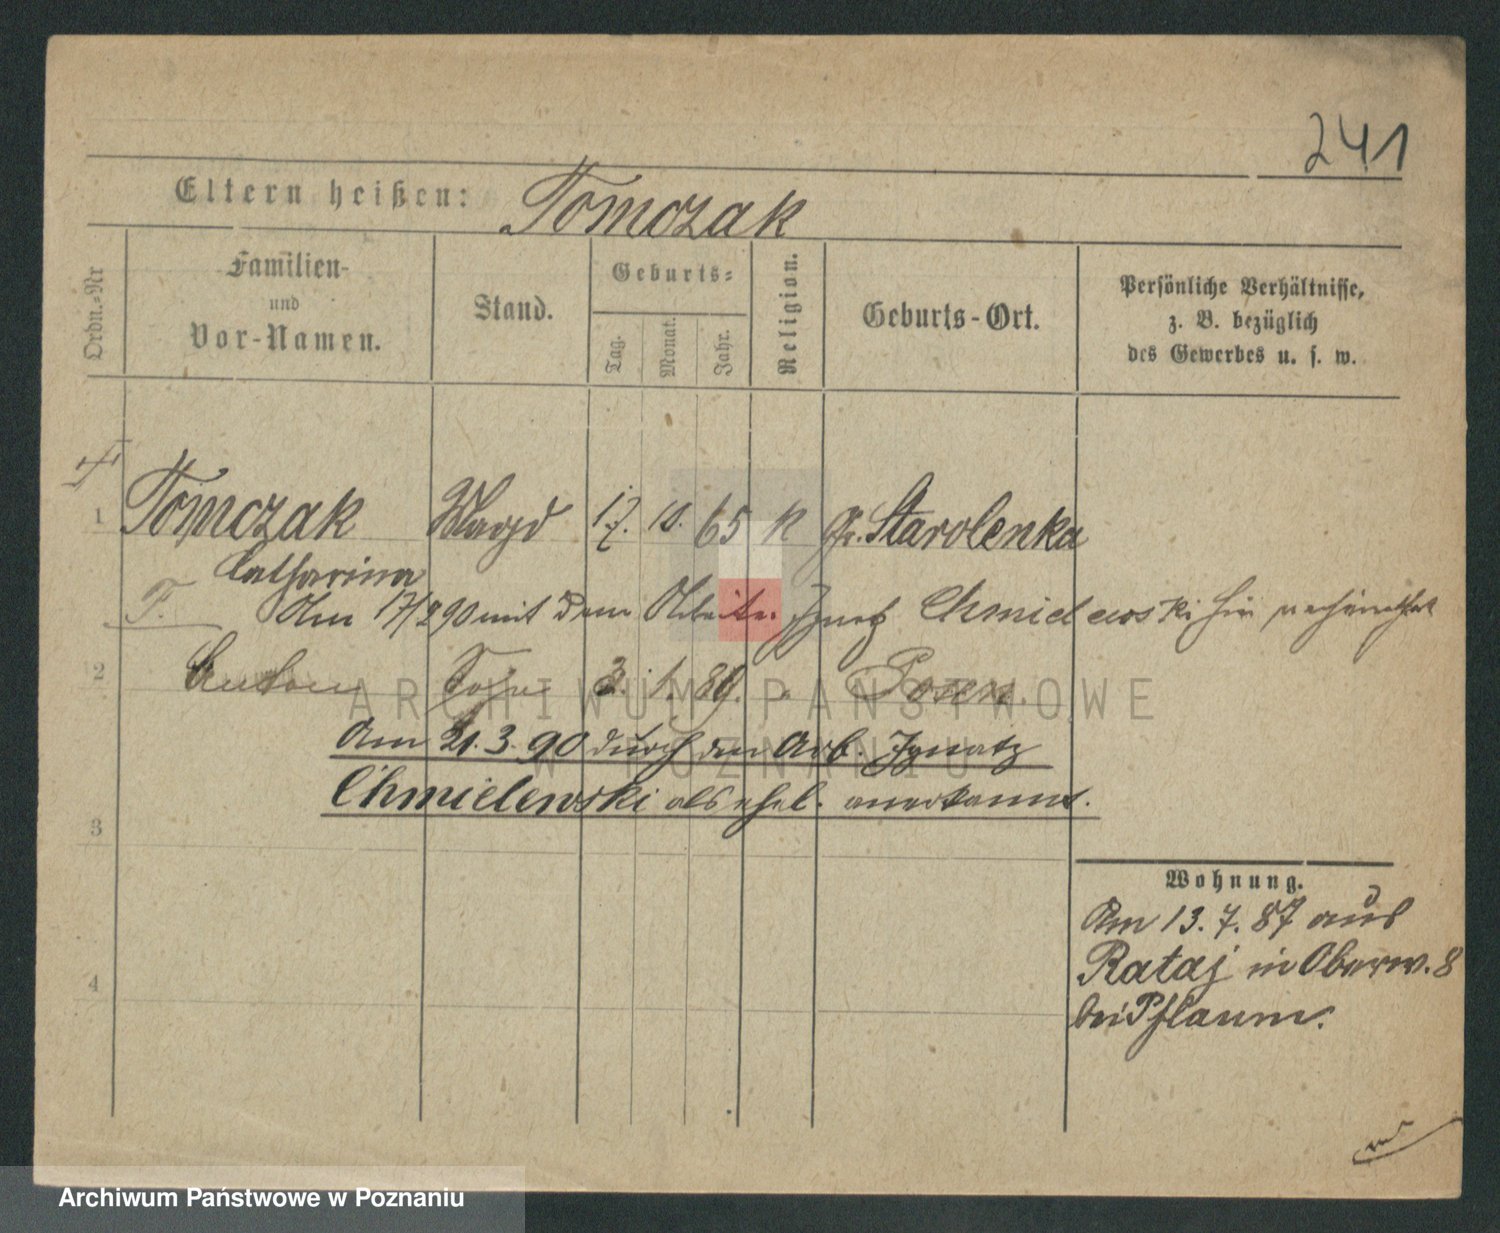 241
Eltern heißen: Tomczak
Ordn.-Nr
Familien-
und
Vor-Namen.
Stand.
Geburts-
Tag.
Monat.
Jahr.
Religion.
Geburts-Ort.
Persönliche Verhältnisse,
z. B. bezüglich
des Gewerbes u. s. w.
1 Tomczak Magd 17. 10. 65 K Gr. Starolenka
Catharina
F. Am 17/2 90 mit dem Arbeiter Ignatz Chmielewski hier verheirathet
2 Anton Sohn 3. 1. 89. " Posen.
ARCHIWUM PAŃSTWOWE
Am 21. 3. 90 durch den Arb. Ignatz
W POZNANIU
Chmielewski als ehel. anerkannt.
3
Wohnung.
Am 13. 7. 87 aus
Rataj in Oberw. 8
bei Pflaum.
4
Archiwum Państwowe w Poznaniu